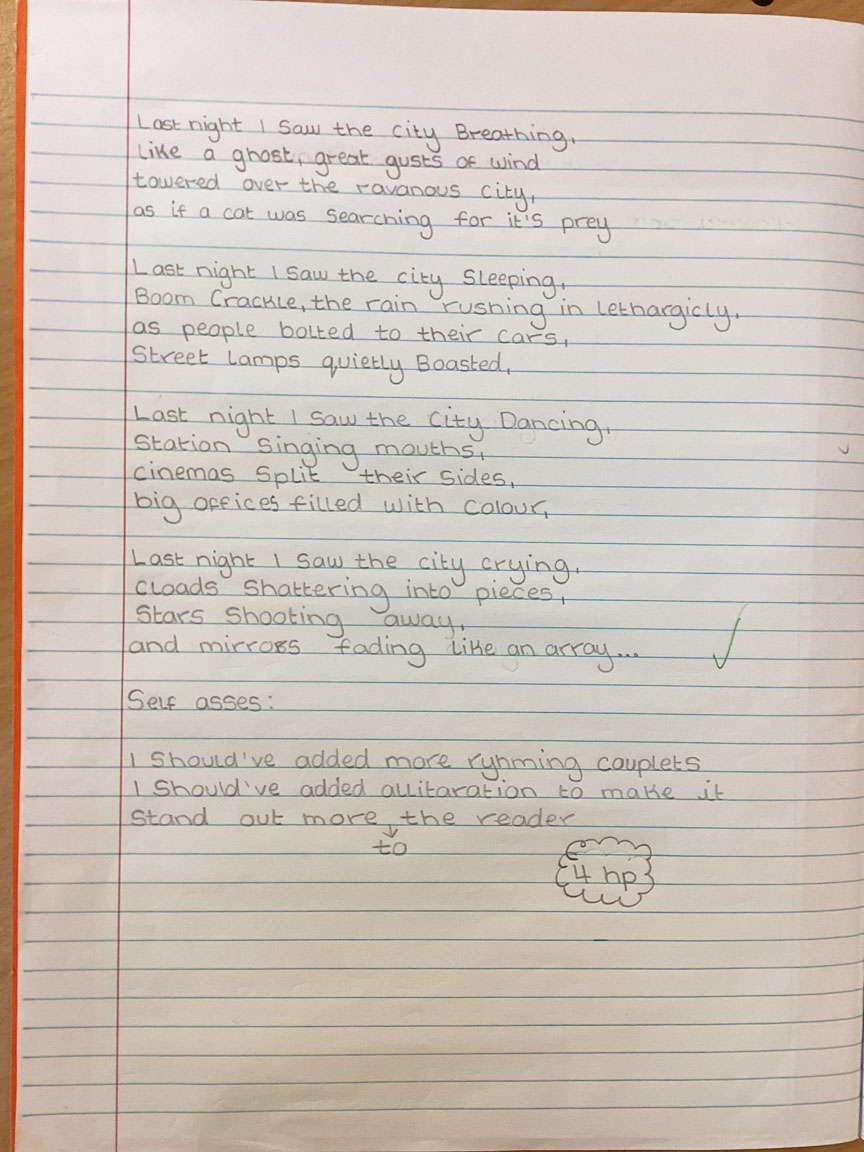 Last night I saw the city Breathing,
Like a ghost, great gusts of wind
towered over the ravanous city,
as if a cat was searching for it's prey
Last night I saw the city Sleeping,
Boom Crackle, the rain rushing in lethargicly,
as people bolted to their cars,
Street lamps quietly Boasted,
Last night I saw the city Dancing,
Station singing mouths,
cinemas split their sides,
big offices filled with colour,
Last night I saw the city crying,
cloads shattering into pieces,
Stars shooting away,
and mirrors fading like an array...
Self asses:
I should've added more ryhming couplets
I should've added allitaration to make it
stand out more the reader
to
4 hp